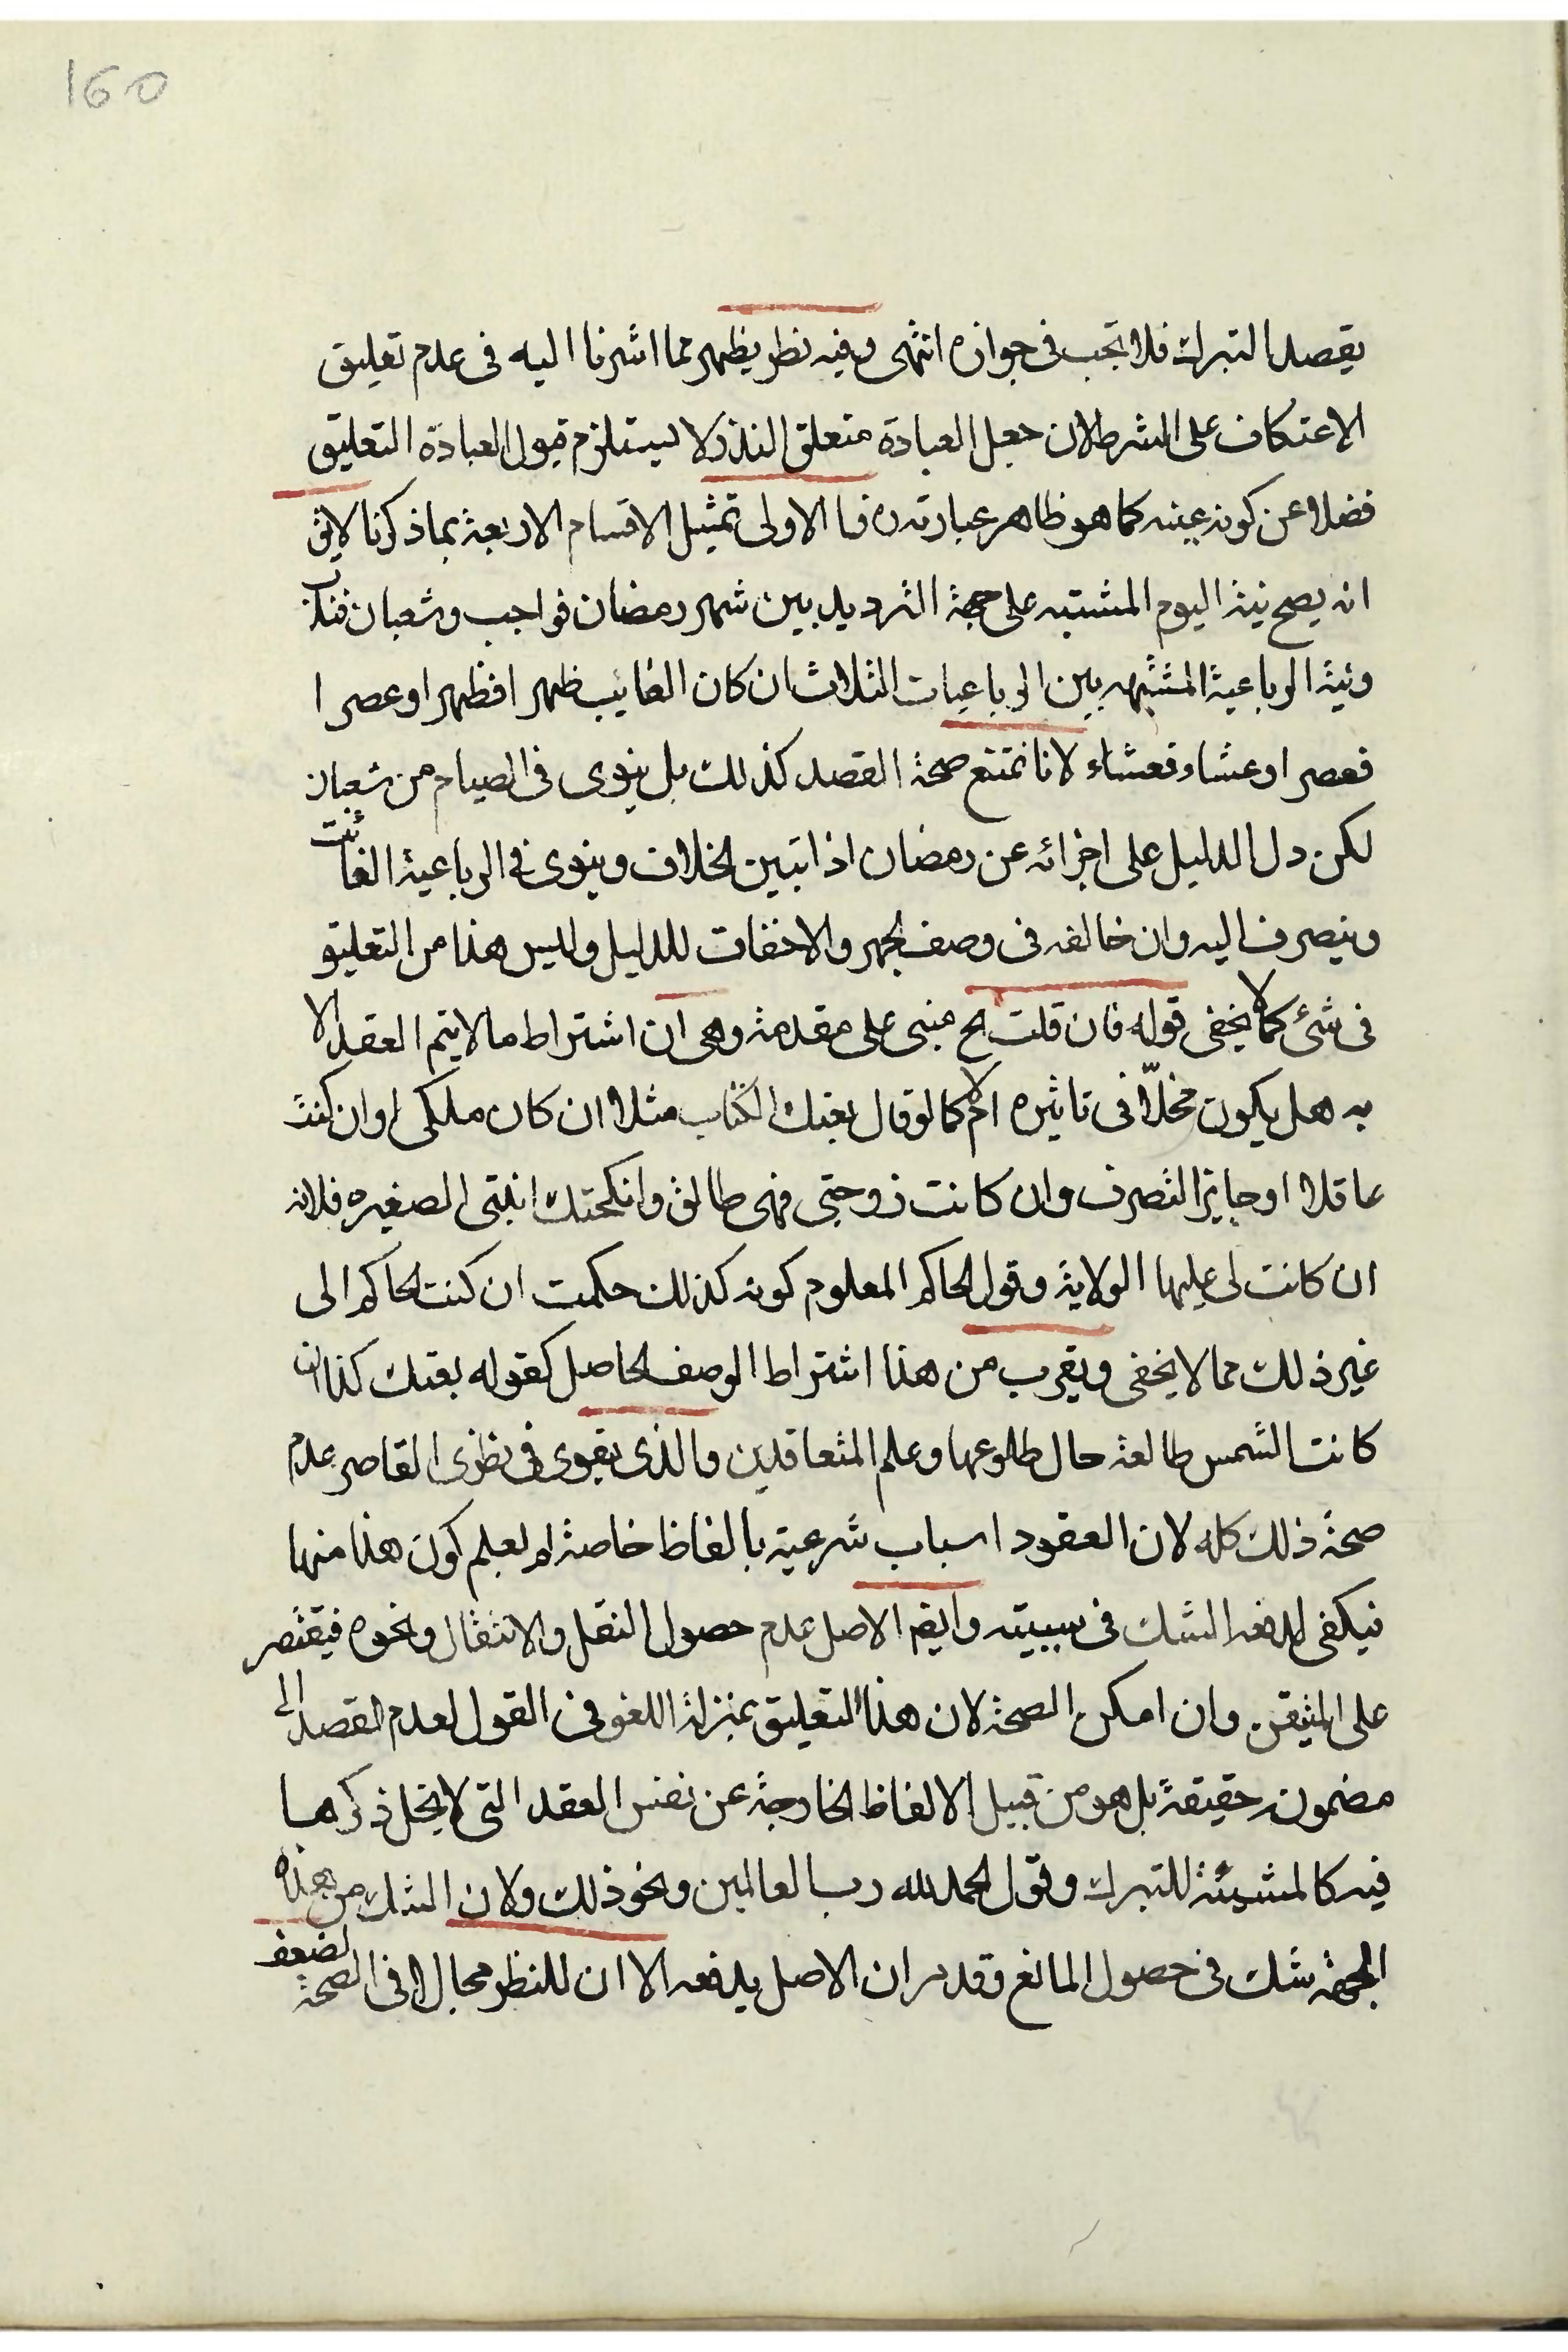 160
يقصد التبرك فلا تجب فى جوازه انتهى وفيه نظر يظهر مما اشرنا اليه فى عدم تعليق
الاعتكاف على الشرط لان جعل العبادة متعلق النذر لا يستلزم قبول العبادة التعليق
فضلا عن كونه عينه كما هو ظاهر عبارته ره فا الاولى تمثيل الاقسام الاربعة بما ذكرنا لايق
انه يصح نية اليوم المشتبه على جهة الترديد بين شهر رمضان فواجب وشعبان فندب
ونية الرباعية المشتبهه بين الرباعيات الثلاث ان كان الغايب ظهر افظهر او عصر ا
فعصر او عشاء فعشاء لانا نمتنع صحة القصد كذلك بل ينوى فى الصيام من شعبان
لكن دل الدليل على اجزائه عن رمضان اذا تبين الخلاف وينوى فى الرباعية الفائت
وينصرف اليه وان خالفه فى وصف الجهر والاخفات للدليل وليس هذا من التعليق
فى شئ كما لا يخفى قوله فان قلت الخ مبنى على مقدمة وهى ان اشتراط ما لا يتم العقد الا
به هل يكون مخلّا فى تاثيره ام لا كما لو قال بعتك الكتاب مثلا ان كان ملكى او ان كنت
عاقلا او جايز التصرف وان كانت زوجتى فهى طالق وانكحتك ابنتى الصغيره فلانه
ان كانت لى عليها الولاية وقول الحاكم المعلوم كونه كذلك حكمت ان كنت الحاكم الى
غير ذلك مما لا يخفى ويقرب من هذا اشتراط الوصف الحاصل كقوله بعتك كذا ان
كانت الشمس طالعة حال طلوعها وعلم المتعاقدين والذى يقوى فى نظرى القاصر عدم
صحة ذلك كله لان العقود اسباب شرعية بالفاظ خاصة لم يعلم كون هذا منها
فيكفى لدفعه الشك فى سببيته وايضا الاصل عدم حصول النقل والانتقال ونحوه فيقتصر
على المتيقن وان امكن الصحة لان هذا التعليق بمنزلة اللغو فى القول لعدم القصد الى
مضمونه حقيقة بل هو من قبيل الالفاظ الخارجة عن نفس العقد التى لا يخل ذكرها
فيه كالمشيئة للتبرك وقول الحمد لله رب العالمين ونحو ذلك ولان الشك من هذه
الجهة شك فى حصول المانع وقد مر ان الاصل يدفعه الا ان للنظر مجال فى الصحة لضعف